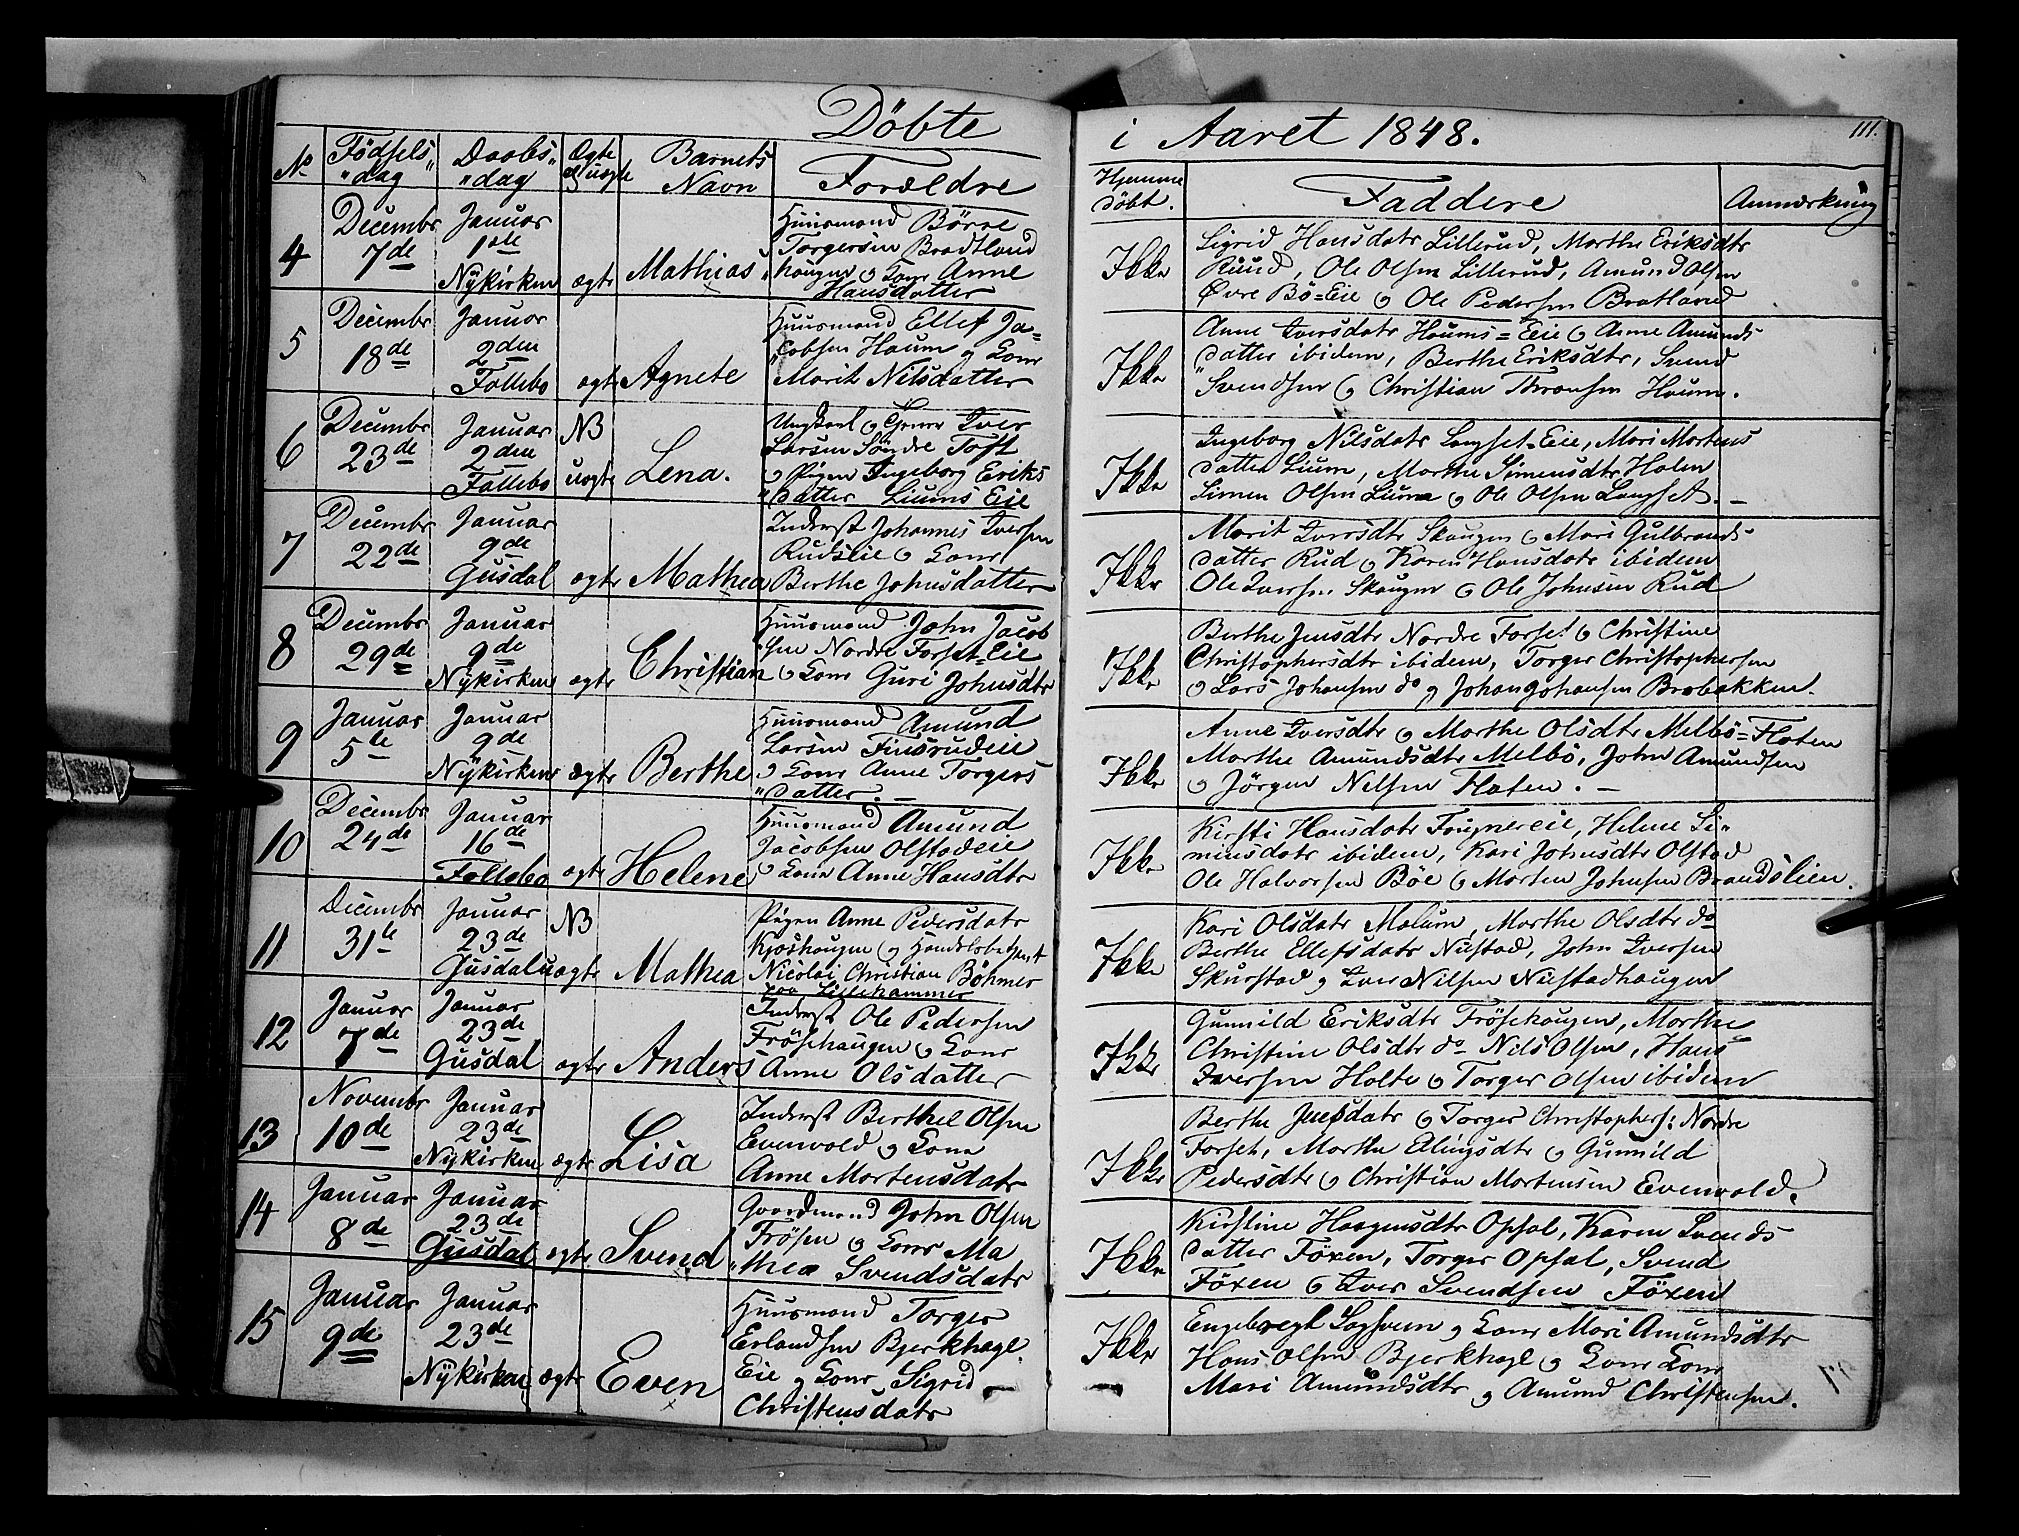 Döbte
i Aaret 1848.
111.
No Födsels dag Daabs dag Ægte el. uægte Barnets Navn Forældre
Hjemme döbt. Faddere Anmærkning
4 Decembr 7de Januar 1ste Nykirken ægte Mathias
Huusmand Börre
Torgersen Bradtland
haugen og Kone Anne
Hansdatter
Ikke
Sigrid Hansdatr Lillerud, Marthe Eriksdtr
Ruud, Ole Olsen Lillerud, Amund Olsen
Övre Bö=Eie og Ole Pedersen Bratland
5 Decembr 18de Januar 2den Follebo ægte Agnete
Huusmand Ellef Ja=
cobsen Haum og Kone
Marit Nilsdatter
Ikke
Anne Iversdatr Haums=Eie og Anne Amunds
datter ibidem, Berthe Eriksdtr, Svend
Svendsen og Christian Thronsen Haum.
6 Decembr 23de Januar 2den Follebo NB uægte Lena.
Ungkarl og Iver
Larsen Söndre Toft
og Pigen Ingeborg Eriks
datter Liums Eie
Ikke
Ingeborg Nilsdatr Langset=Eie, Mari Mortens
datter Lium, Marthe Simensdtr Holen
Simen Olsen Lium og Ole Olsen Langset. —
7 Decembr 22de Januar 9de Gusdal ægte Mathea
Inderst Johannes Iversen
Rudseie og Kone
Berthe Johnsdatter
Ikke
Marit Iversdtr Skaugen og Mari Gulbrands
datter Rud og Karen Hansdatr ibidem
Ole Iversen Skaugen og Ole Johnsen Rud
8 Decembr 29de Januar 9de Nykirken ægte Christian
Huusmand John Jacob
sen Nordre Forset=Eie
og Kone Guri Johnsdtr
Ikke
Berthe Jensdtr Nordre Forset og Christine
Christophersdtr ibidem, Torger Christophersen
og Lars Johansen do og Johan Johansen Brobakken.
9 Januar 5te Januar 9de Nykirken ægte Berthe
Huusmand Amund
Larsen Finsrudeie
og Kone Anne Torgers
datter. —
Ikke
Anne Iversdtr og Marthe Olsdtr Melbö=Floten
Marthe Amundsdtr Melbö, John Amundsen
og Jörgen Nilsen Floten. —
10 Decembr 24de Januar 16de Follebo ægte Helene
Huusmand Amund
Jacobsen Olstadeie
og Kone Anne Hansdtr
Ikke
Kirsti Hansdatr Fougnereie, Helene Si=
mensdatr ibidem, Kari Johnsdtr Olstad
Ole Halvorsen Böe og Morten Johnsen Brandslien.
11 Decembr 31te Januar 23de Gusdal NB uægte Mathea
Pigen Anne Pedersdatr
Kjoshaugen og Handelsbetjent
Nicolai Christian Böhmer
paa Lillehammer
Ikke
Kari Olsdatr Malum, Marthe Olsdtr do
Berthe Ellefsdatr Nustad, John Iversen
Skurstad og Iver Nilsen Nustadhaugen
12 Januar 7de Januar 23de Gusdal ægte Anders
Inderst Ole Pedersen
Frösehaugen og Kone
Anne Olsdatter
Ikke
Gunnild Eriksdtr Frösehaugen, Marthe
Christine Olsdtr do Nils Olsen, Hans
Iversen Holte og Torger Olsen ibidem
13 Novembr 10de Januar 23de Nykirken ægte Lisa
Inderst Berthel Olsen
Evenvold og Kone
Anne Mortensdatr
Ikke
Berthe Jensdatr og Torger Christophers: Nordre
Forset, Marthe Ellingsdtr og Gunnild
Pedersdtr og Christian Mortensen Evenvold.
14 Januar 8de Januar 23de Gusdal ægte Svend
Gaardmand John Olsen
Frösen og Kone Ma
thea Svendsdatr
Ikke
Kirstine Haagensdtr Opsal, Karen Svends
datter Föxen, Torger Opsal, Svend
Föxen og Iver Svendsen Föxen
15 Januar 9de Januar 23de Nykirken ægte Even
Huusmand Torger
Erlandsen Bjerkhagl.
Eie og Kone Sigrid
Christensdatr
Ikke
Engebregt Sagsveen og Kone Mari Amundsdtr
Hans Olsen Bjerkhagl og Kone Kone
Mari Amundsdtr og Amund Christensen.